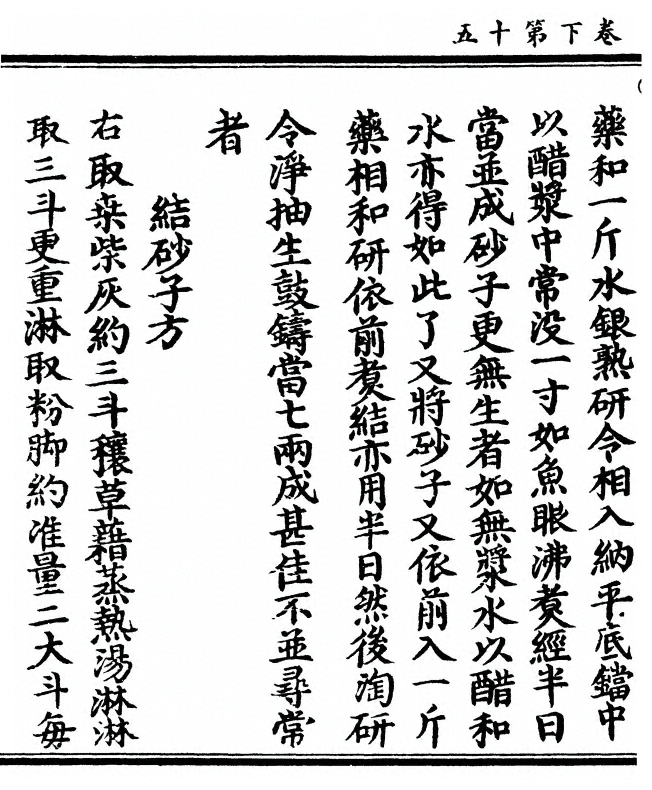 卷下第十五
藥和一斤水銀熟研令相入納平底鐺中
以醋漿中常没一寸如魚眼沸煑經半日
當並成砂子更無生者如無漿水以醋和
水亦得如此了又將砂子又依前入一斤
藥相和研依前煑結亦用半日然後淘研
令淨抽生鼓鑄當七兩成甚佳不並尋常
者
結砂子方
右取桒柴灰約三斗穰草藉蒸熱湯淋淋
取三斗更重淋取粉脚約准量二大斗每